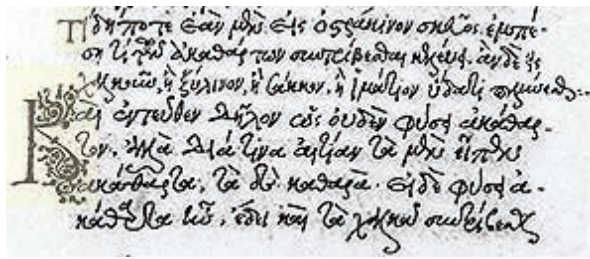 Τί δήποτε ἐὰν μὲν εἰς ὀστράκινον σκεῦος. ἐμπέ-
ση τὶ τῶν ἀκαθάρτων συντρίβεσθαι κελεύει. ἂν δὲ εἰς
χαλκοῦν, ἢ ξύλινον, ἢ σάκκον, ἢ ἱμάτιον ὕδατι
Καὶ ἐντεῦθεν δῆλον ὡς οὐδὲν φύσει ἀκάθαρ-
τον. ἀλλὰ διά τινα αἰτίαν τὰ μὲν εἶπεν
ἀκάθαρτα. τὰ δὲ καθαρά. εἰ δὲ φύσει ἀ-
κάθαρτα ἦν. ἔδει καὶ τὰ συντρίβεσθαι